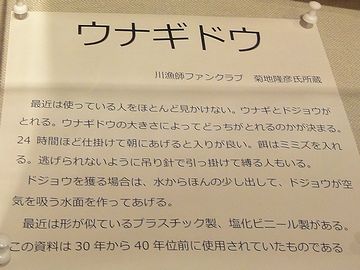 ウナギドウ
川漁師ファンクラブ　菊地隆彦氏所蔵
最近は使っている人をほとんど見かけない。ウナギとドジョウが
とれる。ウナギドウの大きさによってどっちがとれるのかが決まる。
24 時間ほど仕掛けて朝にあげると入りが良い。餌はミミズを入れ
る。逃げられないように吊り針で引っ掛けて縛る人もいる。
ドジョウを獲る場合は、水からほんの少し出して、ドジョウが空
気を吸う水面を作ってあげる。
最近は形が似ているプラスチック製、塩化ビニール製がある。
この資料は 30 年から 40 年位前に使用されていたものである